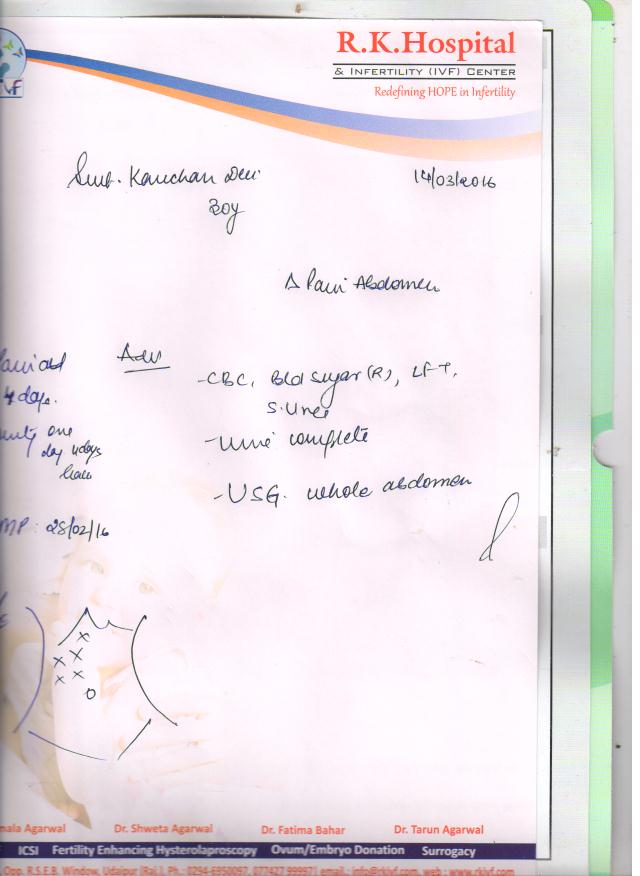 R.K.Hospital
& INFERTILITY (IVF) CENTER
Redefining HOPE in Infertility
IVF
Smt. Kanchan Devi
14/03/2016
30y
Δ Pain Abdomen
Adv
- CBC, Bld sugar (R), LFT,
S. Urea
4 days.
one
day 4 days
- Urine complete
- USG. whole abdomen
MP: 28/02/16
x
x x
x x
o
mala Agarwal Dr. Shweta Agarwal Dr. Fatima Bahar Dr. Tarun Agarwal
ICSI Fertility Enhancing Hysterolaproscopy Ovum/Embryo Donation Surrogacy
Opp. R.S.E.B. Window, Udaipur (Raj.), Ph.: 0294-6950097, 077427 99997| email : info@rkivf.com, web : www.rkivf.com